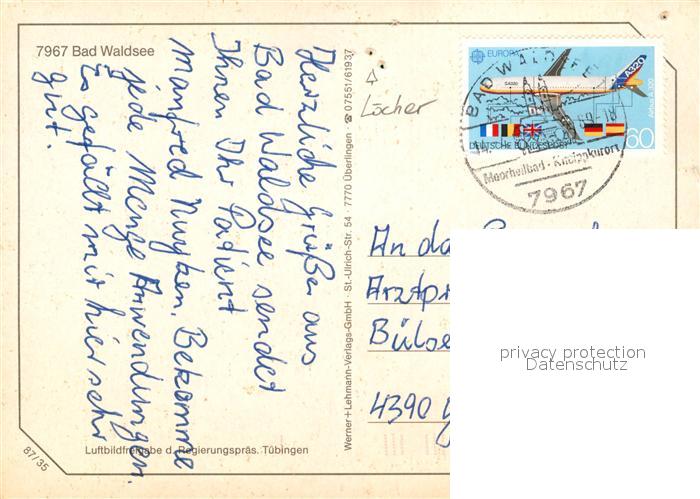 7967 Bad Waldsee
Herzliche Grüße aus
Bad Waldsee sendet
Ihnen Ihr Patient
Manfred Bekomme
jede Menge Anwendungen.
Es gefällt mir hier sehr
gut.
87/35
Luftbildfreigabe d. Regierungspräs. Tübingen
Werner+Lehmann-Verlags-GmbH · St.-Ulrich-Str. 54 · 7770 Überlingen · ☎ 07551/61937
Löcher
EUROPA
A320
Airbus A 320
60
DEUTSCHE BUNDESPOST
BAD WALD
Moorheilbad · Kneippkurort
7967
An da
Arztpr
Bülse
4390 G
privacy protection
Datenschutz